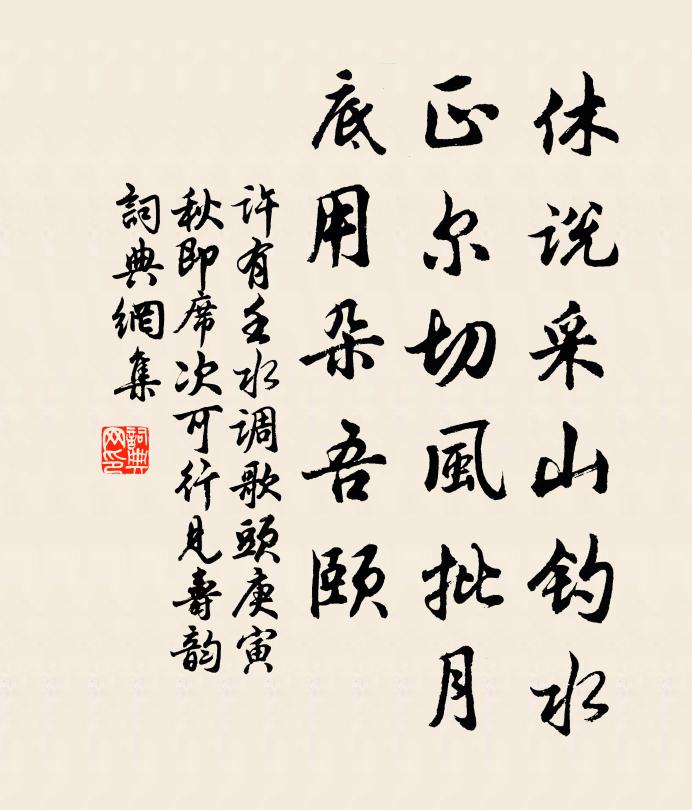 休说采山钓水
正尔切風批月
底用朶吾颐
许有壬水调歌頭庚寅
秋即席次可行见壽韵
詞典網集
詞典
网印